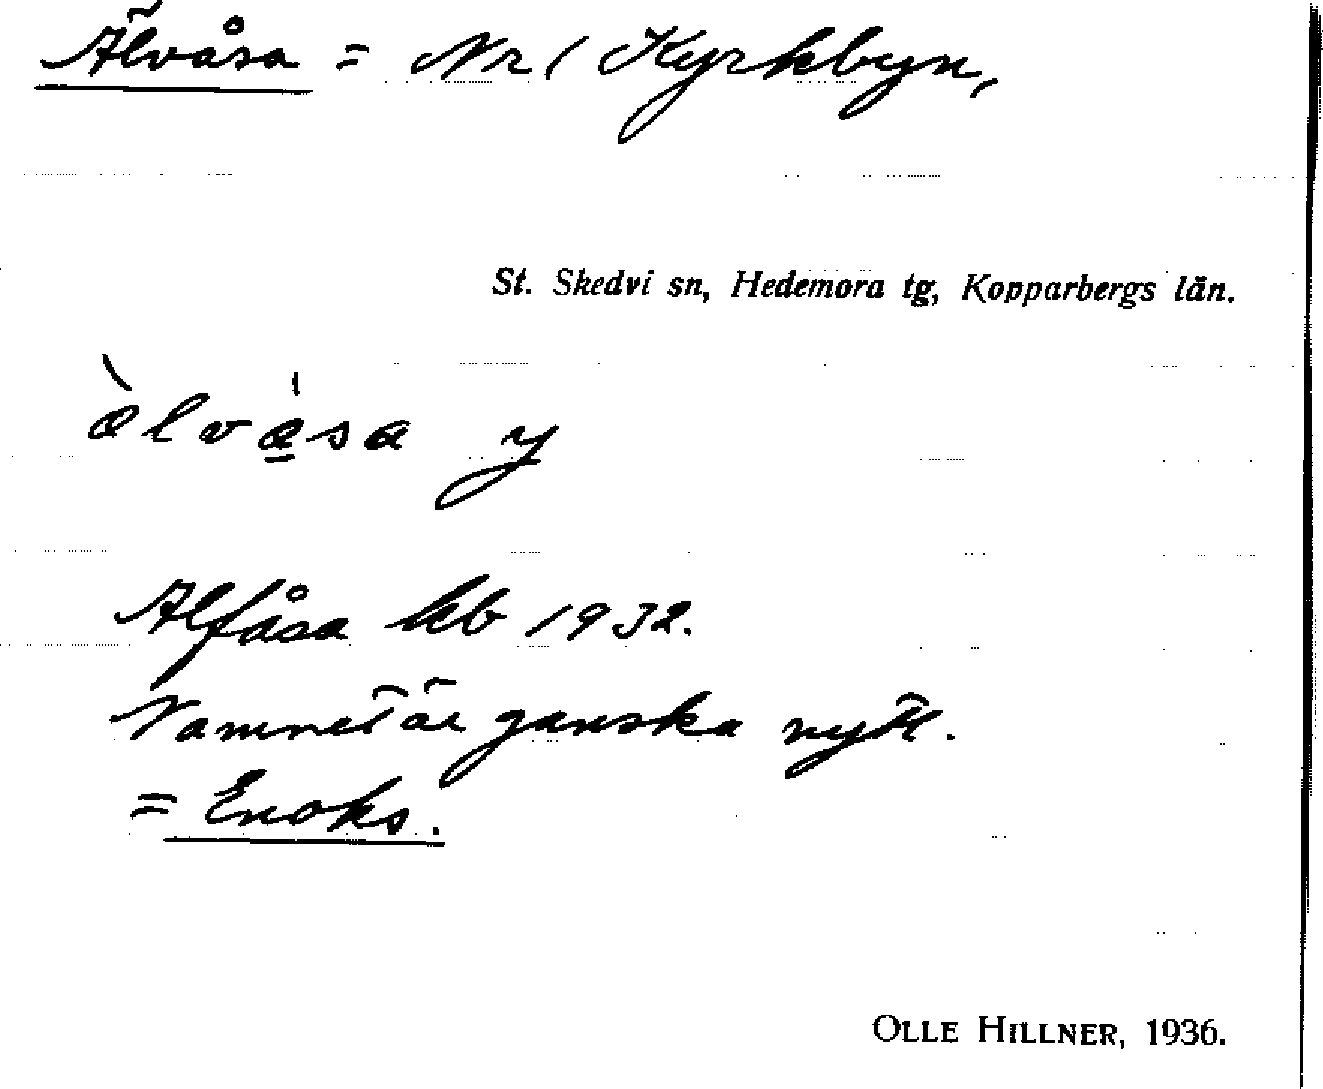 Älvåsa = Nr 1 Kyrkbyn,
St. Skedvi sn, Hedemora tg, Kopparbergs län.
y
Alfåsa kb 1932.
Namnet är ganska nytt.
= Enoks.
OLLE HILLNER, 1936.